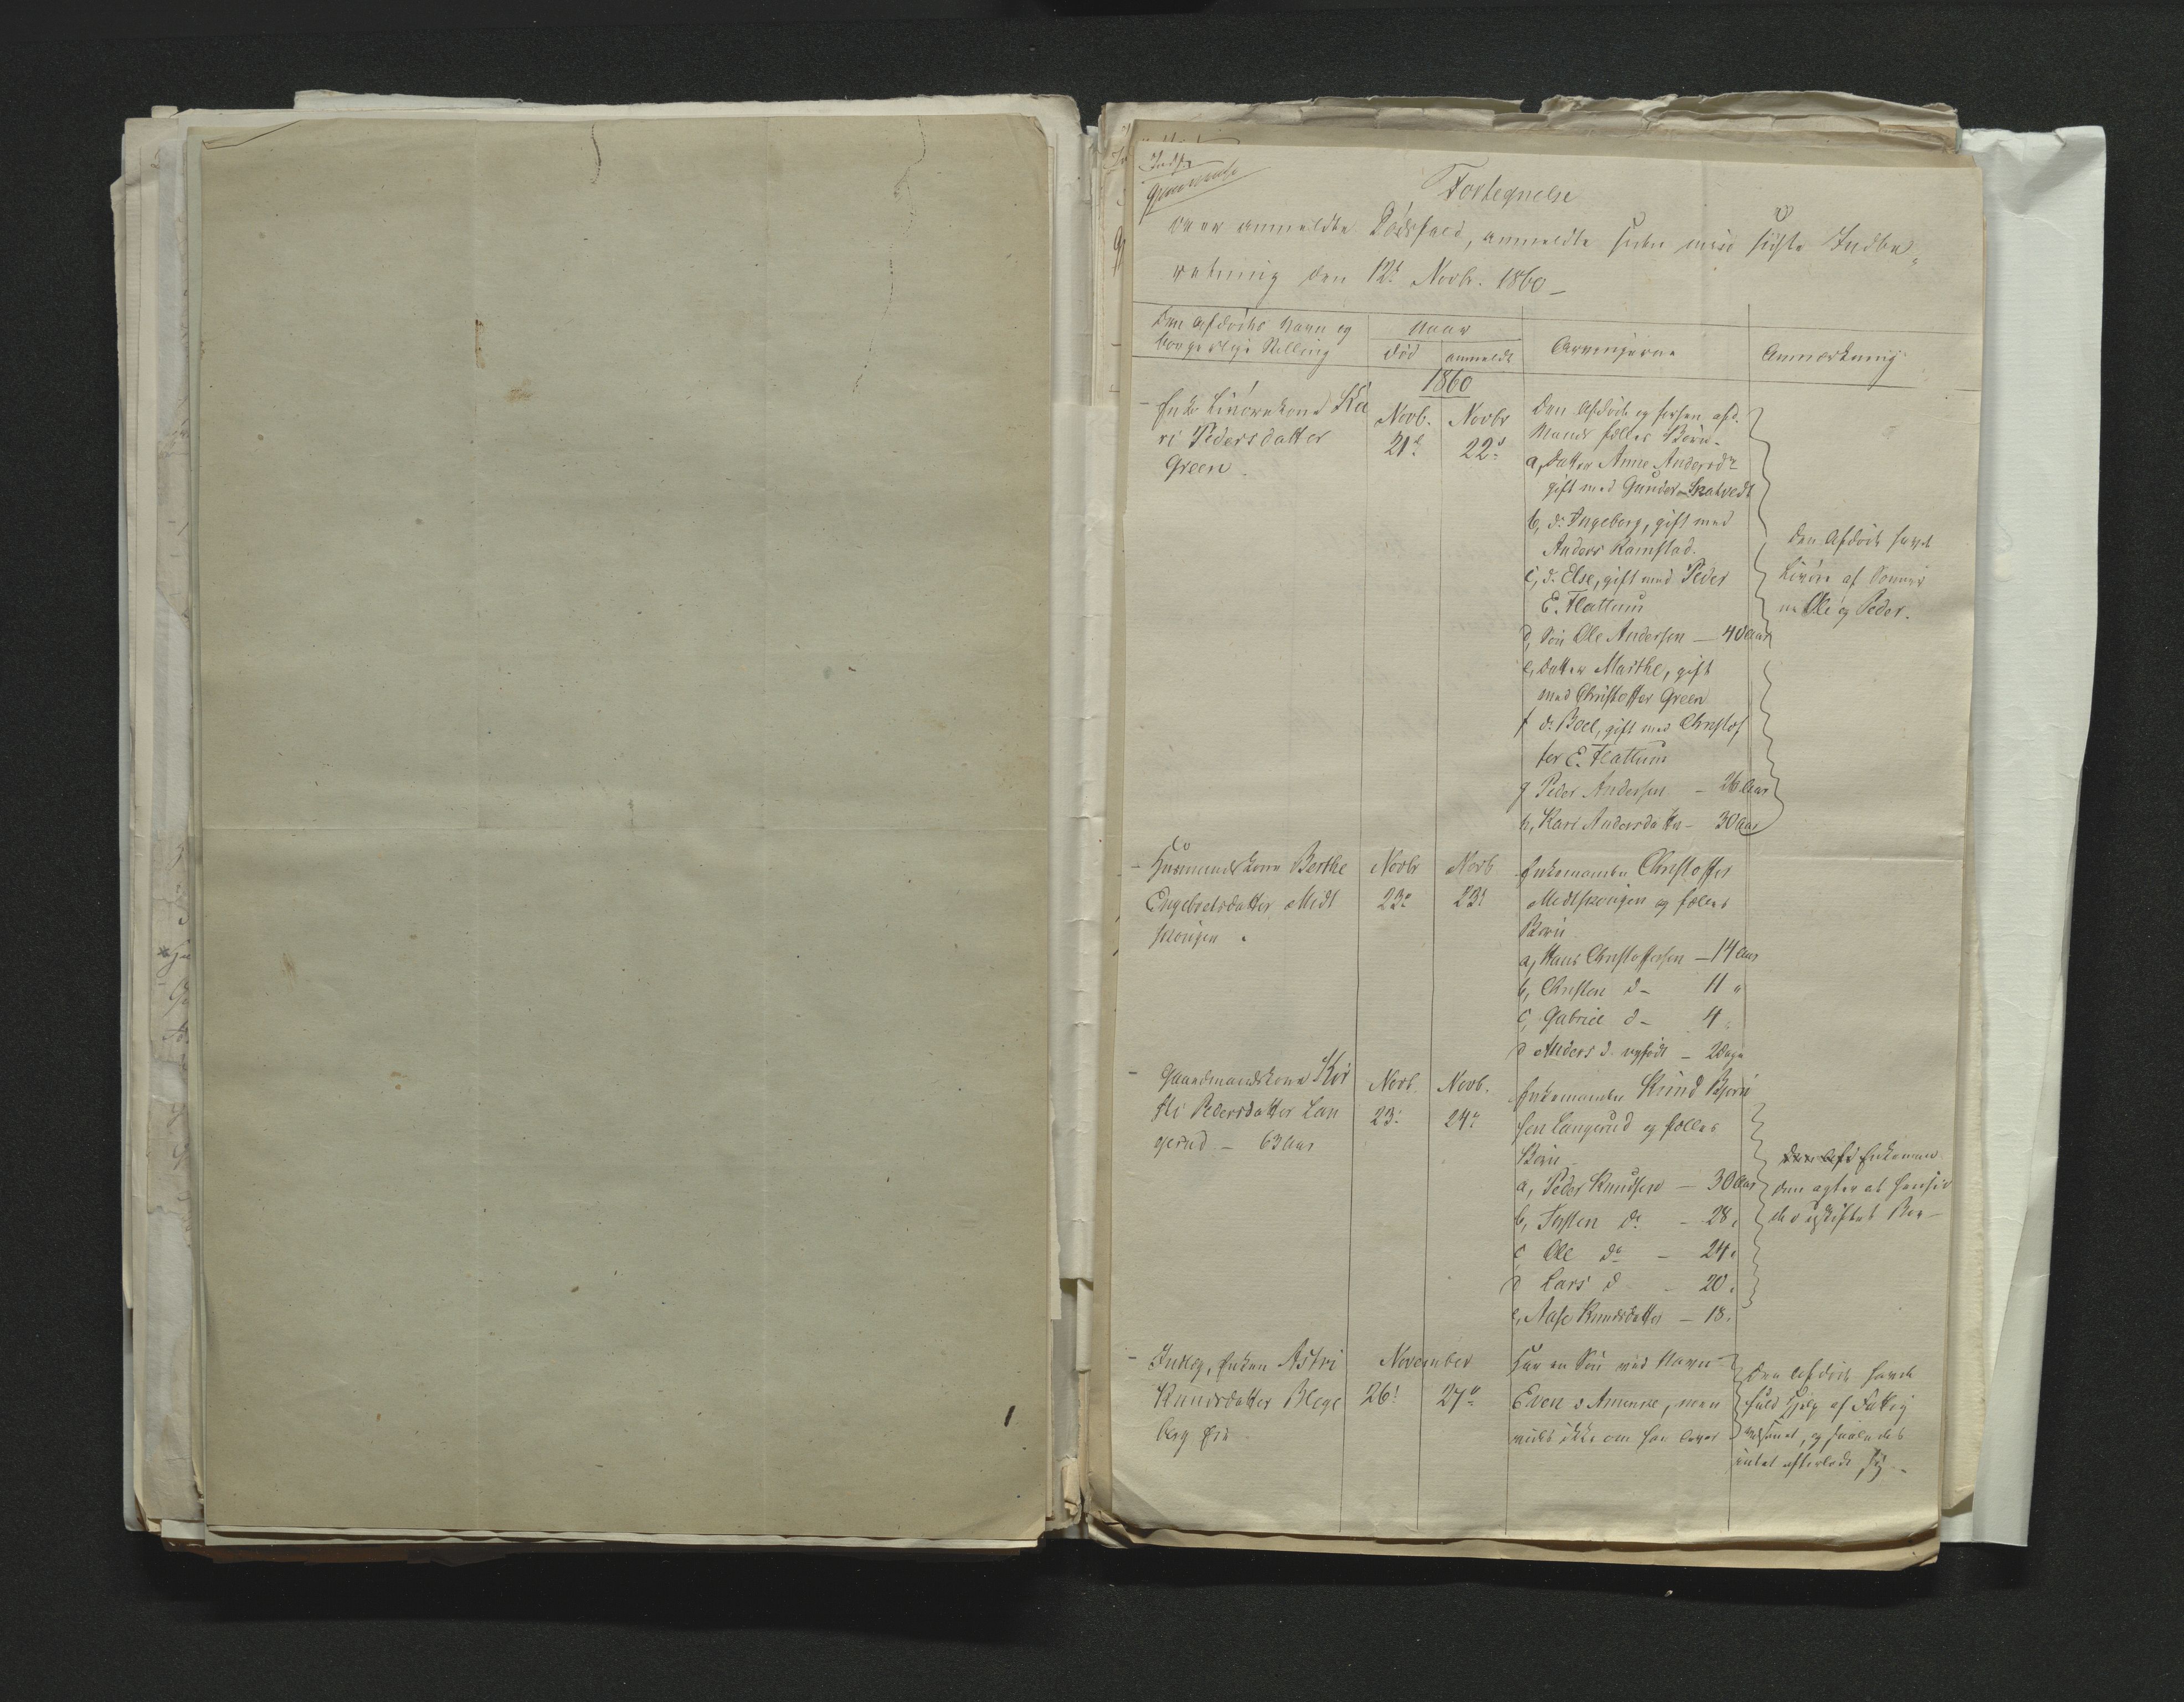 Fortegnelse
over anmeldte Dödsfald, anmeldte siden min sidste Indbe„
retning den 12t Novbr. 1860 —
Den Afdödes Navn og
borgerlige Stilling
Naar
död
anmeldt
Arvingerne
Anmærkning
1860
– Enke Livörekone Ka
ri Pedersdatter
Green –
Novb.
21d
Novbr
22d
Den Afdöde og forhen afd.
Mands fælles Börn.
a, Datter Anne Andersdr
gift med Gunder Skatvedt
b, do Ingeborg, gift med
Anders Ramstad.
c, do Else, gift med Peder
E. Flattum
d, Sön Ole Andersen — 40 Aar
e, Datter Marthe, gift
med Christoffer Green
f do Boel, gift med Christof
fer E. Flattum
g Peder Andersen – 26 Aar
h, Kari Andersdatter – 30 Aar
Den Afdöde havde
Livöre af Sönner
ne Ole og Peder.
– Huusmandskone Berthe
Engebretsdatter Midt
skougen
Novbr
23d
Novb
23d
Enkemanden Christoffer
Midtskougen og fælles
Börn
a, Hans Christoffersen — 14 Aar
b, Christen do – 11 "
c, Gabriel do – 4 "
d Anders do nyfödt – 2 Dage
– Gaardmandskone Kir
sti Pedersdatter Lan
gerud – 63 Aar
Novb.
23d
Novb.
24d
Enkemanden Knud Björn
sen Langerud og fælles
Börn
a, Peder Knudsen — 30 Aar
b, Torsten do – 28 "
c Ole do – 24 "
d Lars do – 20 "
e, Aase Knudsdatter – 18 "
Den Afd Enkeman
den agter at hensid
de i uskiftet Bo –
– Inderst, Enken Astri
Knudsdatter Blege
berg
November
26d
27d
Har en Sön ved Navn
Even i Amerika, men
vides ikke om han lever
Den Afdöde havde
fuld Hjelp af Fattig
væsenet, og saaledes
intet efterlod sig –